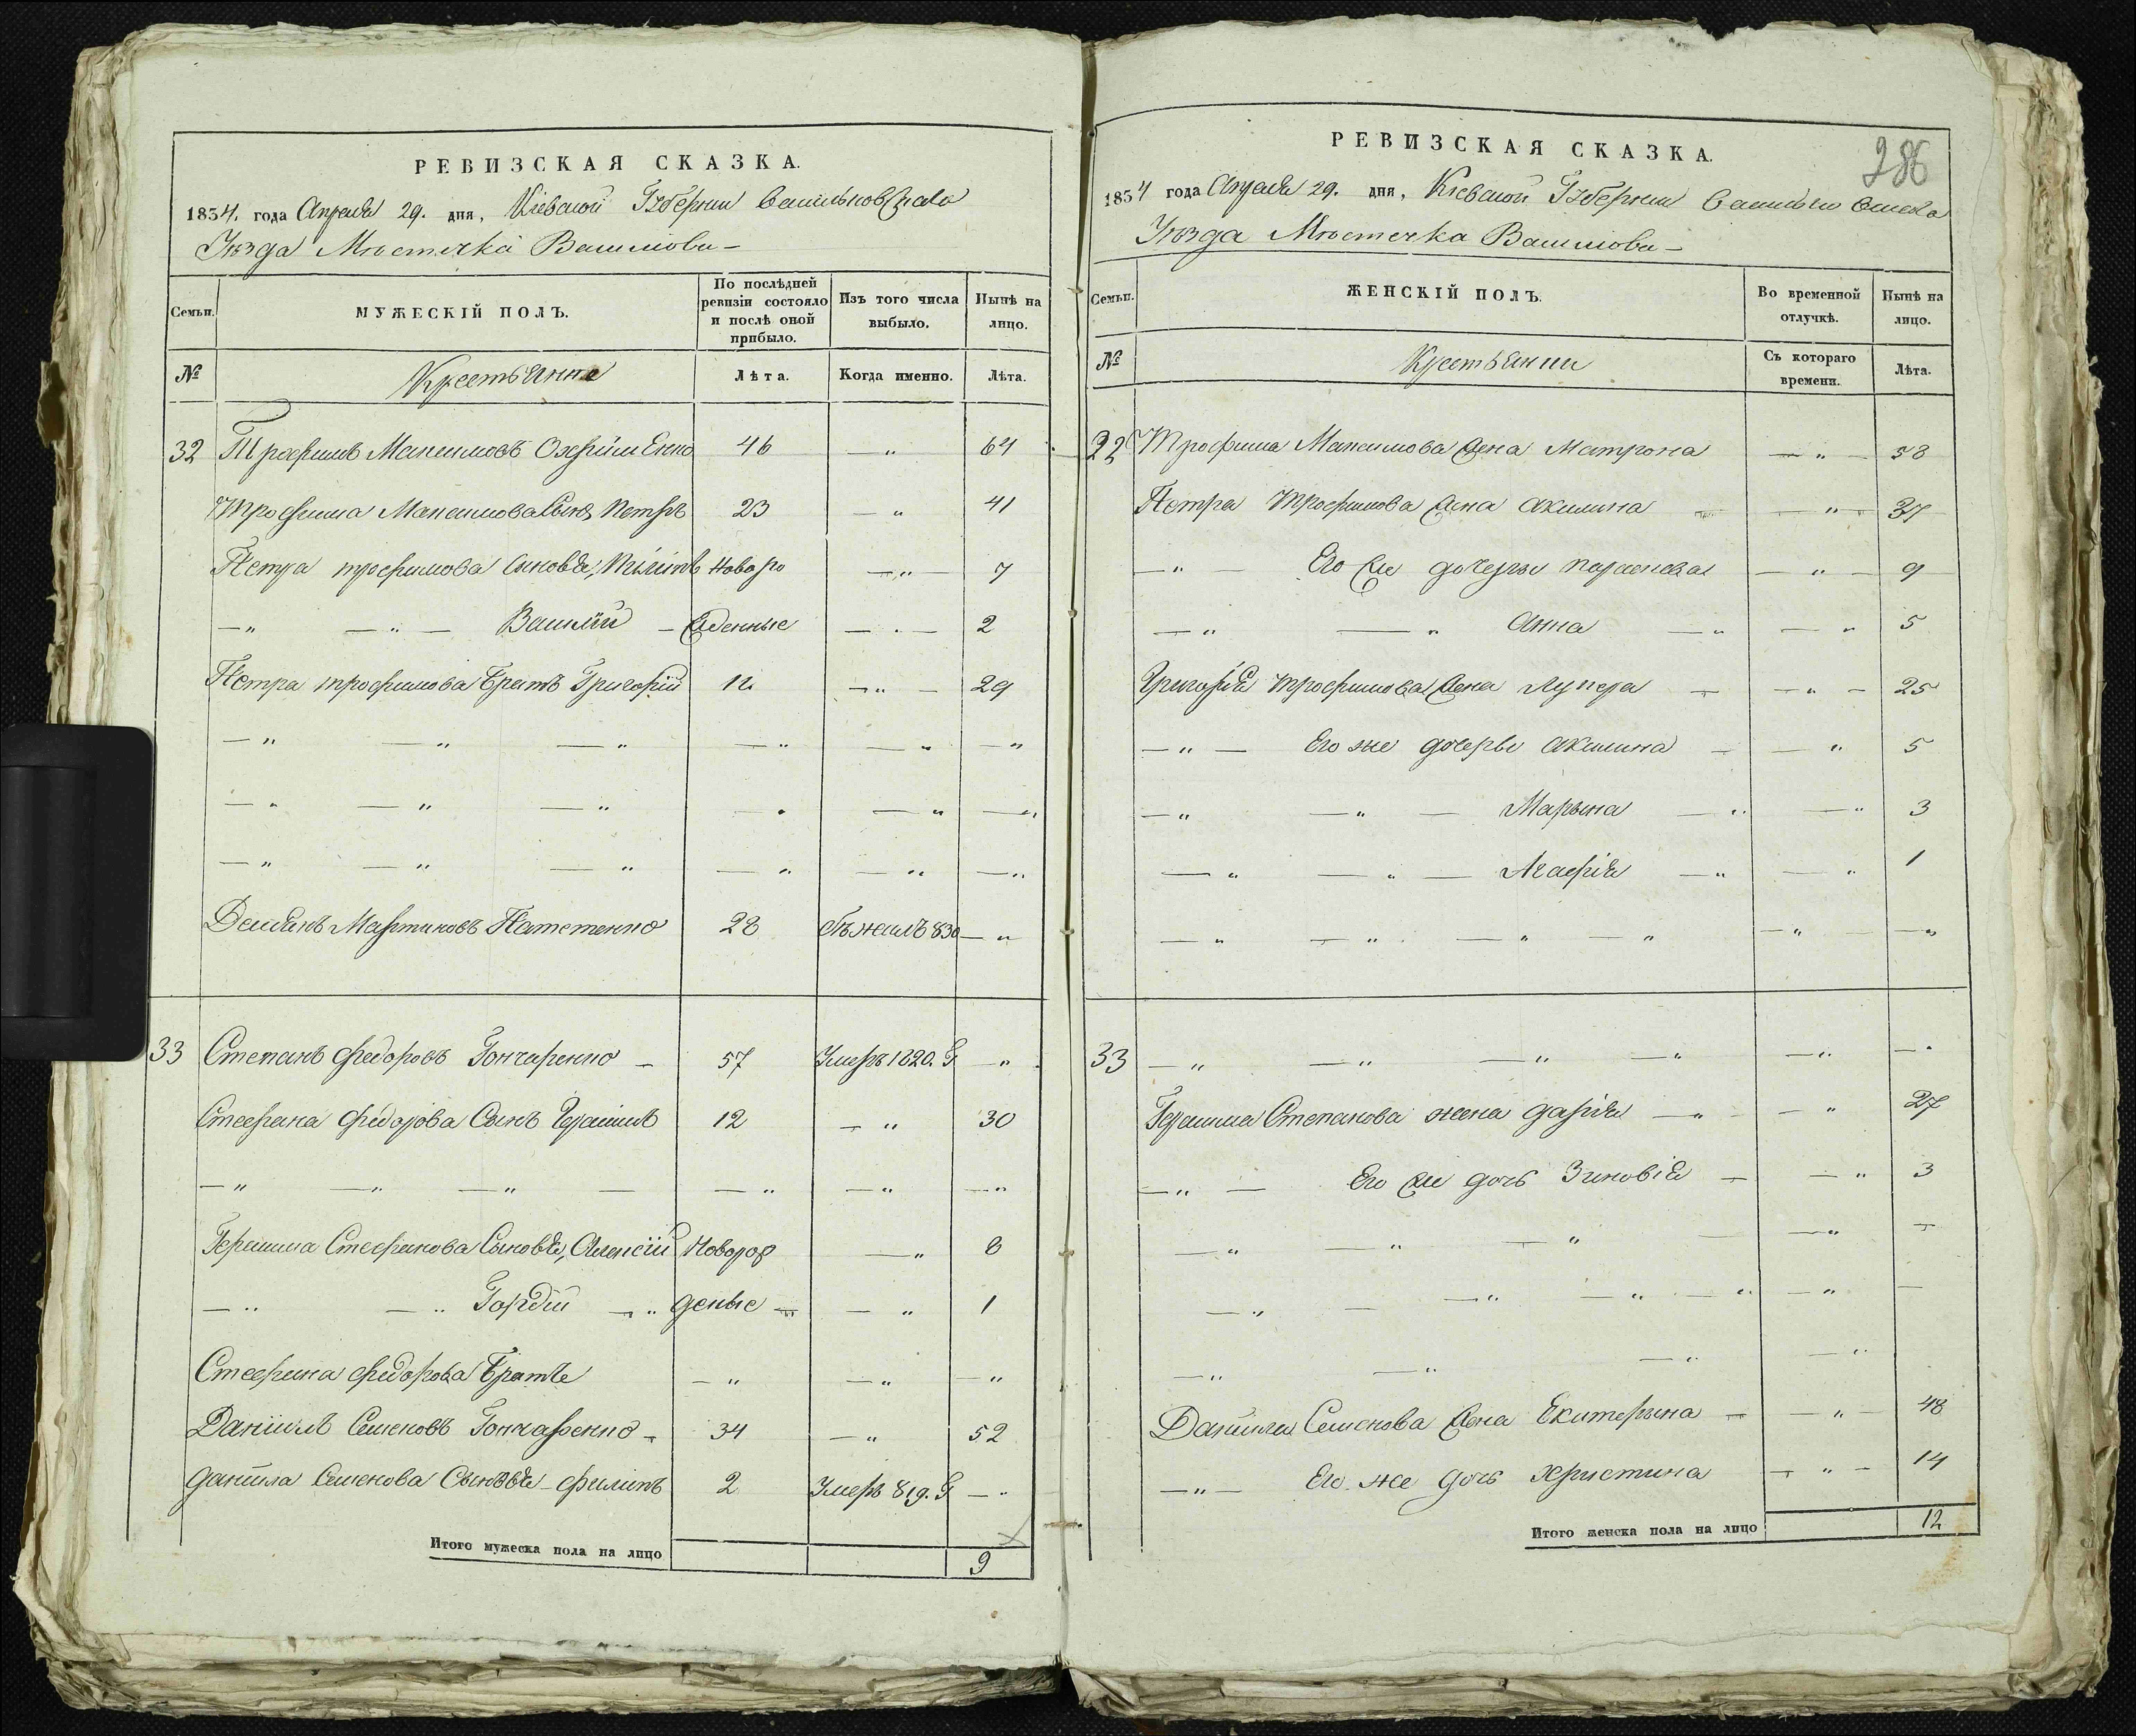 РЕВИЗСКАЯ СКАЗКА.
1834. года Апреля 29. дня, Кіевской Губерніи Васильковскаго
Уѣзда Мѣстечка
Семьи.
МУЖЕСКІЙ ПОЛЪ.
По послѣдней ревизіи состояло и послѣ оной прибыло.
Изъ того числа выбыло.
Нынѣ на лицо.
№ Крестьяне Лѣта. Когда именно. Лѣта.
32 Трофимъ Максимовъ 46 — „ 64
Трофима Максимова Сынъ Петръ 23 — „ 41
Петра трофимова сыновья, Новоро — „ 7
— „ — „ — Василій — жденные — „ — 2
Петра трофимова братъ Григорій — „ — 29
— „ — „ — „ — „ — „ — „
— „ — „ — „ — „ — „ — „
— „ — „ — „ — „ — „ — „
Демьянъ Мартиновъ 28 бѣжалъ 830 — „
33 Степанъ Федоровъ Гончаренко — 57 Умеръ 1820. Г — „
Стефана Федорова Сынъ Герасимъ 12 — „ 30
— „ — „ — „ — — „ — „ — „
Герасима Стефанова Сыновья, Алексій Новорож — „ 8
— „ — „ Гордій — „ денные — — „ 1
Стефана Федорова братъ — „ — „ — „
Даніилъ Семеновъ Гончаренко — 34 — „ 52
Даніила Семенова Сыновья — Филипъ 2 Умеръ 819. Г — „
Итого мужеска пола на лицо 9
РЕВИЗСКАЯ СКАЗКА.
286
1834 года Апреля 29. дня, Кіевской Губерніи
Уѣзда Мѣстечка
Семьи.
ЖЕНСКІЙ ПОЛЪ.
Во временной отлучкѣ.
Нынѣ на лицо.
№ Крестьянки Съ котораго времени. Лѣта.
32 Трофима Максимова жена Матрона — „ — 58
Петра Трофимова жена Акилина — — „ — 37
— „ — Его же дочери — „ — 9
— „ — „ Анна — „ — „ 5
Григорія Трофимова жена — — „ — 25
— „ — Его же дочери Акилина — — „ 5
— „ — „ — Марына — „ — „ 3
— „ — „ — Агафія — „ — „ 1
— „ — „ — „ — „ — „ — — „
33 — „ — „ — „ — „ — „ — „
Герасима Степанова жена Дарія — „ — „ 27
— „ — Его же дочь Зиновія — — „ 3
— „ — „ — „ — — „ —
— „ — — „ — „ — „ — „ —
— „ — „ — „ — „
Даніила Семенова жена Екатерына — — „ — 48
— „ — Его же дочь Христина — „ — 14
Итого женска пола на лицо 12